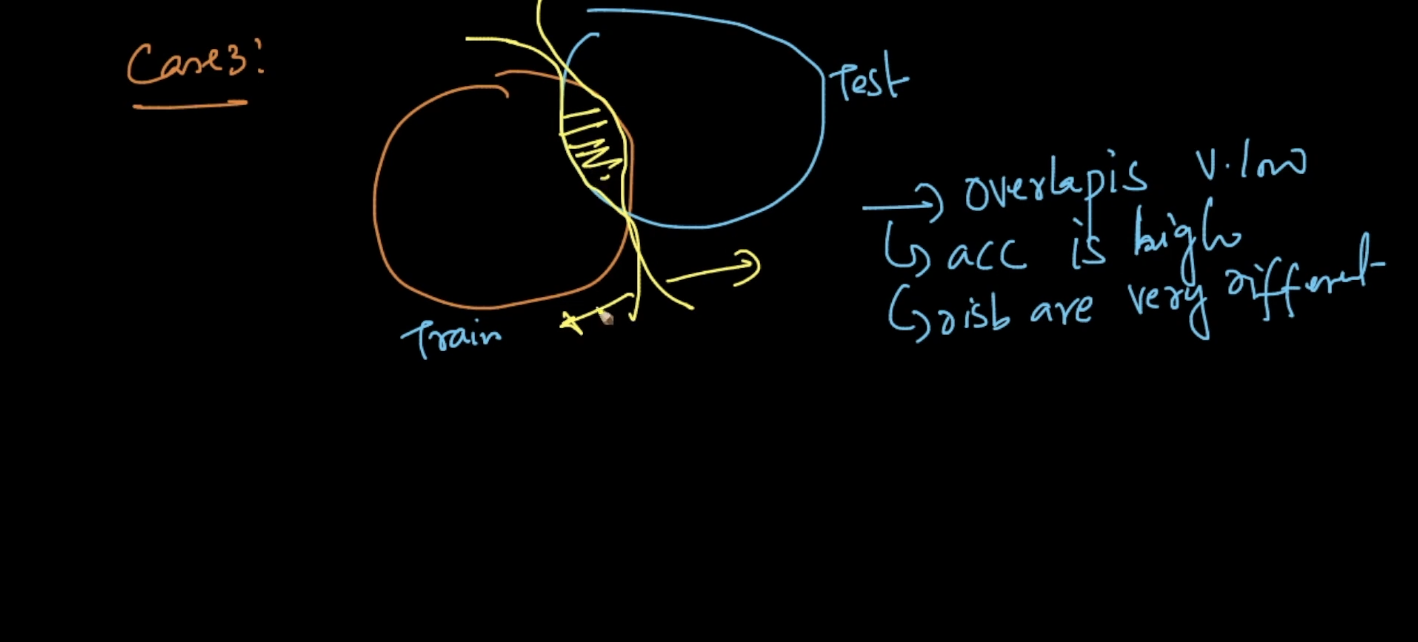 Case3:
Test
→ overlap is v.low
↳ acc is high
↳ disb are very different
Train